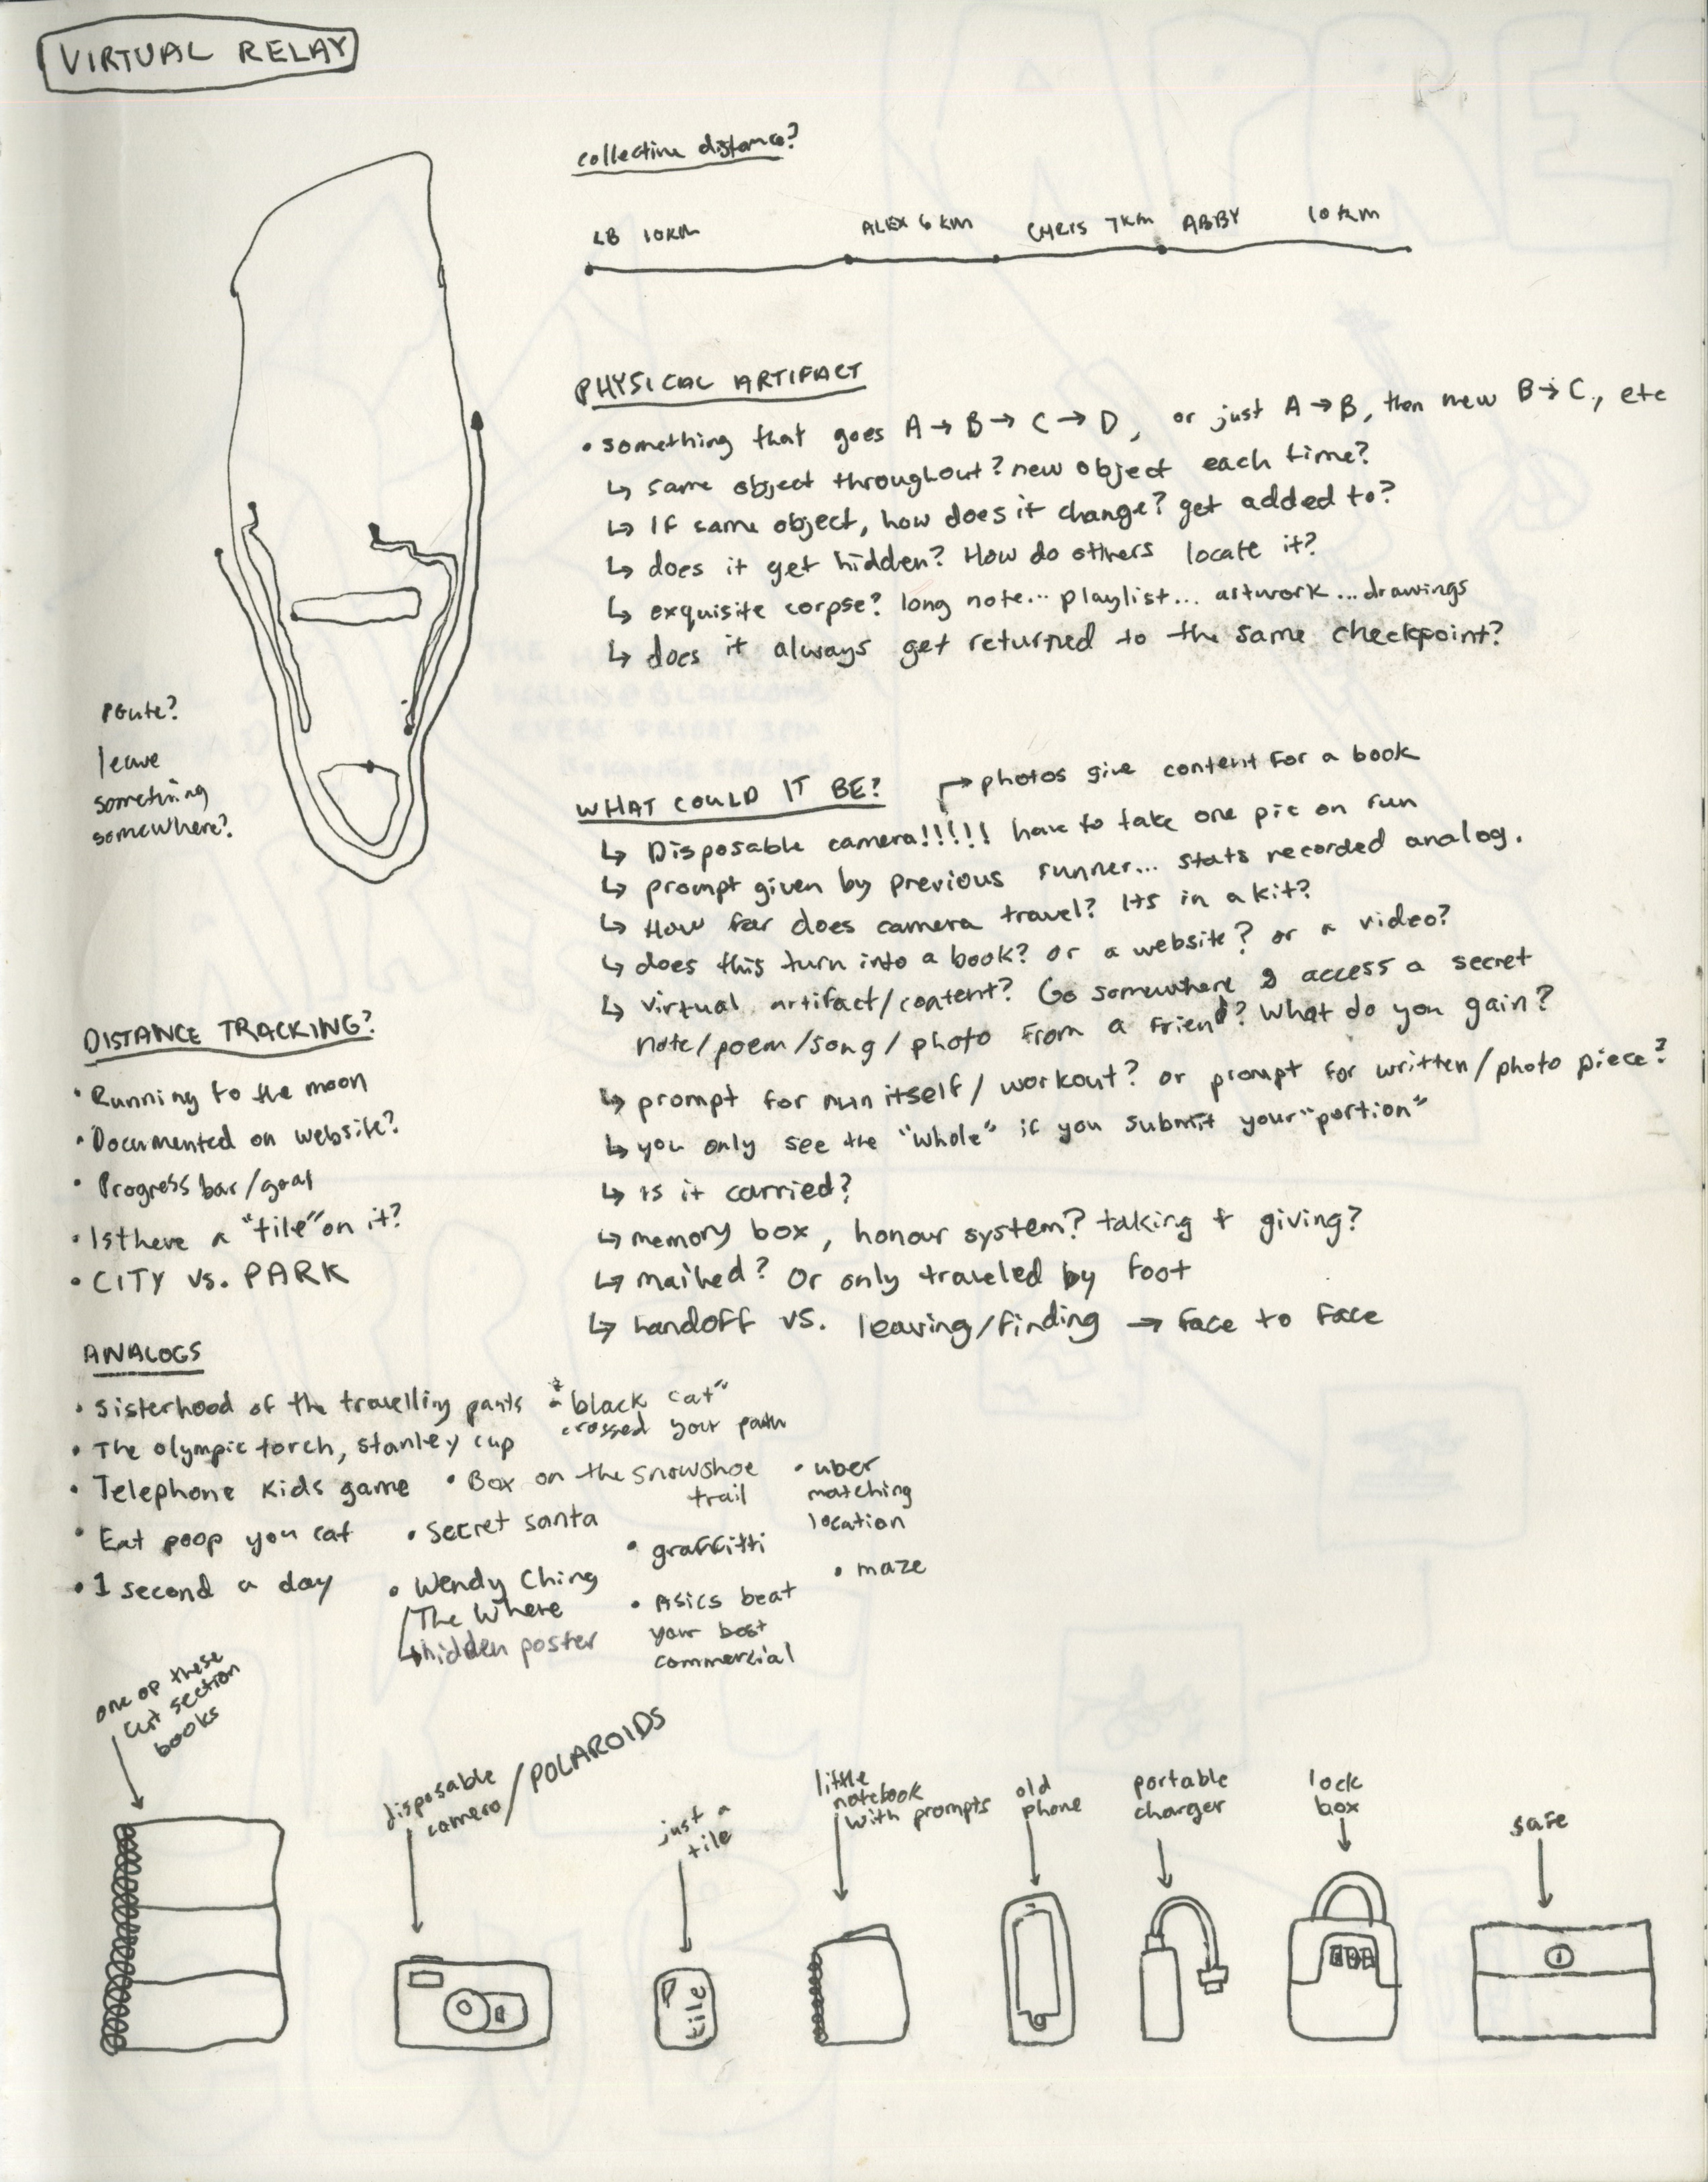 VIRTUAL RELAY
collective distance?
LB 10KM ALEX 6 KM CHRIS 7KM ABBY 10 KM
PHYSICAL ARTIFACT
• something that goes A → B → C → D, or just A → B, then new B → C, etc
↳ same object throughout? new object each time?
↳ If same object, how does it change? get added to?
↳ does it get hidden? How do others locate it?
↳ exquisite corpse? long note... playlist... artwork... drawings
↳ does it always get returned to the same checkpoint?
route?
leave
something
somewhere?
WHAT COULD IT BE?
→ photos give content for a book
↳ Disposable camera!!!!! have to take one pic on run
↳ prompt given by previous runner... stats recorded analog.
↳ How far does camera travel? Its in a kit?
↳ does this turn into a book? or a website? or a video?
↳ virtual artifact/content? Go somewhere & access a secret
note/poem/song/photo from a friend? What do you gain?
↳ prompt for run itself/workout? or prompt for written/photo piece?
↳ you only see the "whole" if you submit your "portion"
↳ is it carried?
↳ memory box, honour system? taking + giving?
↳ mailed? Or only traveled by foot
↳ handoff vs. leaving/finding → face to face
DISTANCE TRACKING?
• Running to the moon
• Documented on website?
• Progress bar/goal
• Is there a "tile" on it?
• CITY vs. PARK
ANALOGS
• Sisterhood of the travelling pants
• "black cat"
crossed your path
• The olympic torch, stanley cup
• Telephone kids game
• Box on the snowshoe
trail
• uber
matching
location
• Eat poop you cat
• Secret santa
• graffitti
• maze
• 1 second a day
• Wendy Ching
/The Where
↳ hidden poster
• Asics beat
your best
commercial
one op these
cut section
books
disposable
camera/POLAROIDS
just a
tile
little
notebook
with prompts
old
phone
portable
charger
lock
box
safe
tile